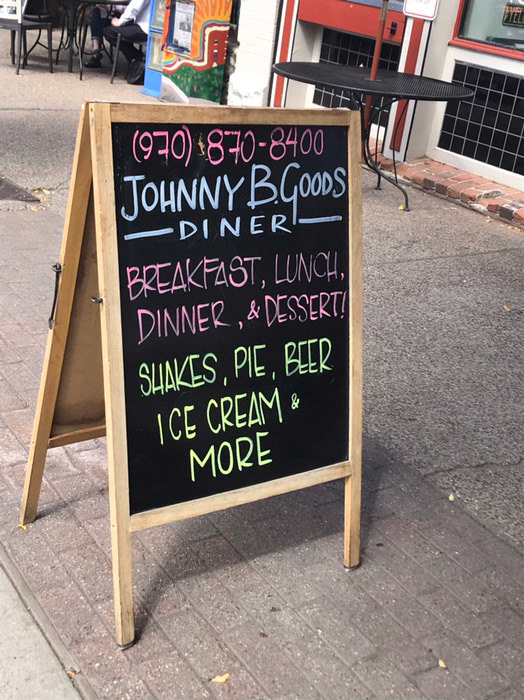 (970) 870-8400
JOHNNY B. GOODS
— DINER —
BREAKFAST, LUNCH,
DINNER, & DESSERT!
SHAKES, PIE, BEER
ICE CREAM &
MORE